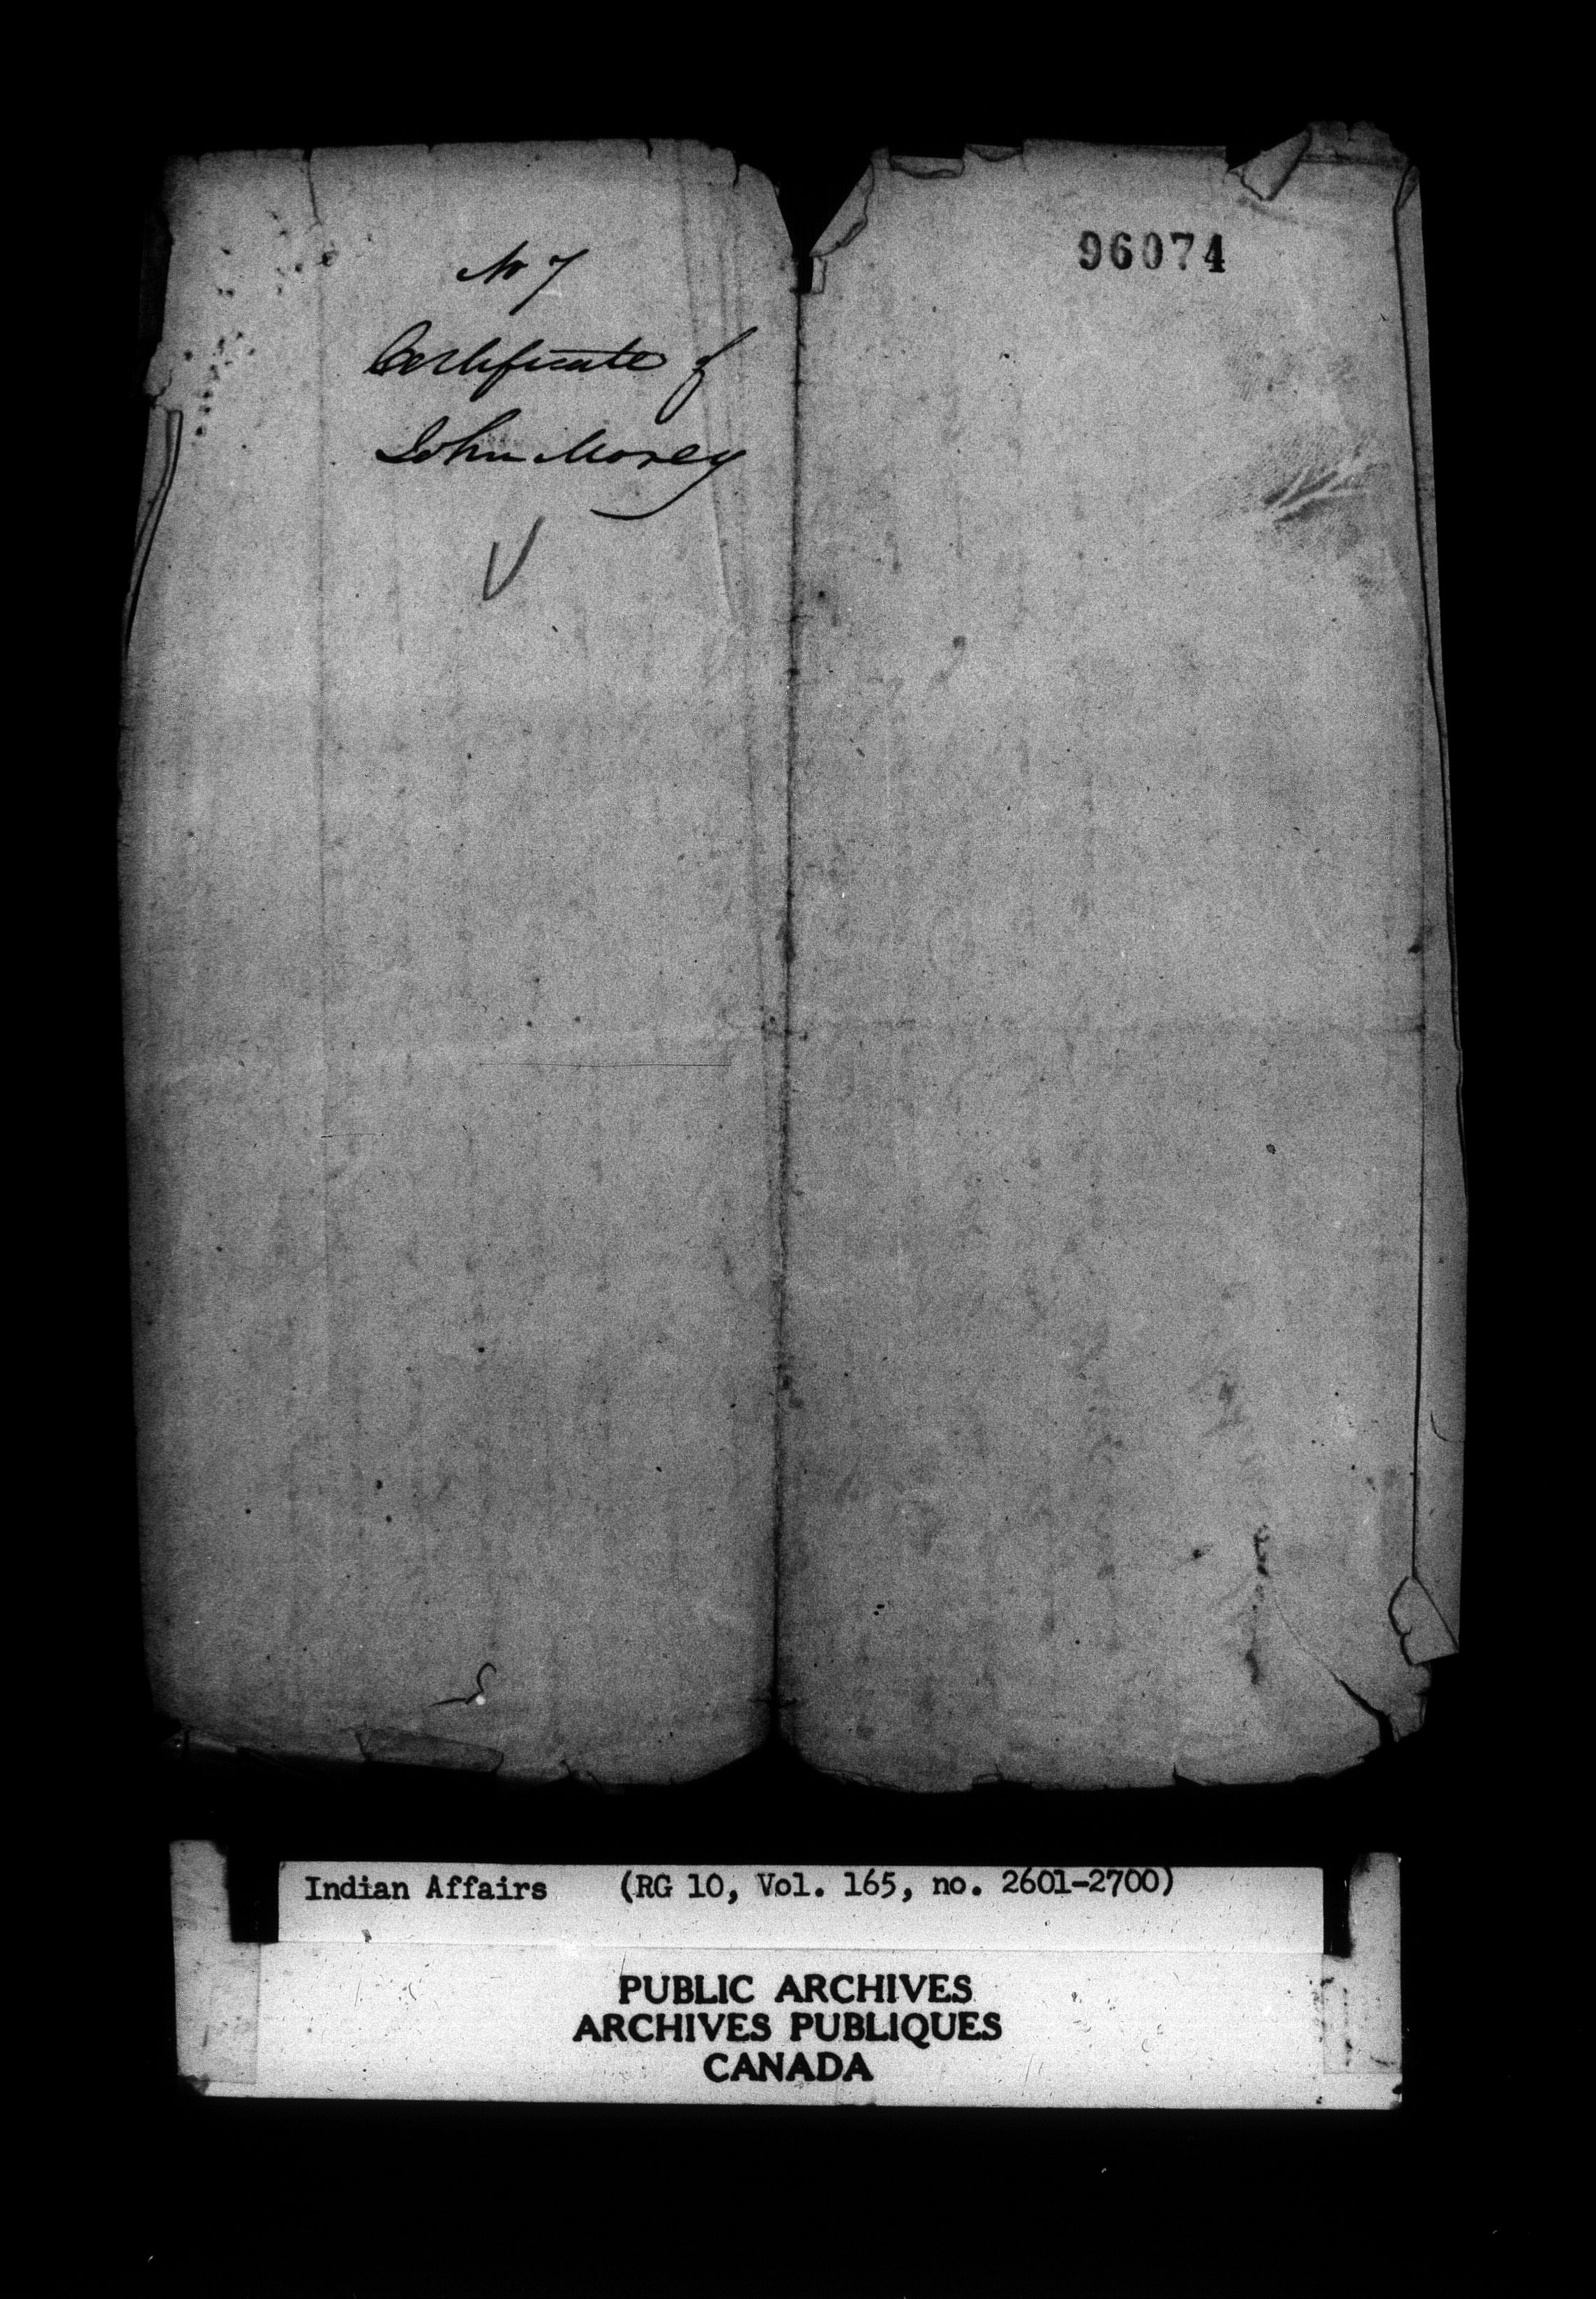 No 7
Certificate of
John Morey
96074
Indian Affairs (RG 10, Vol. 165, no. 2601-2700)
PUBLIC ARCHIVES
ARCHIVES PUBLIQUES
CANADA